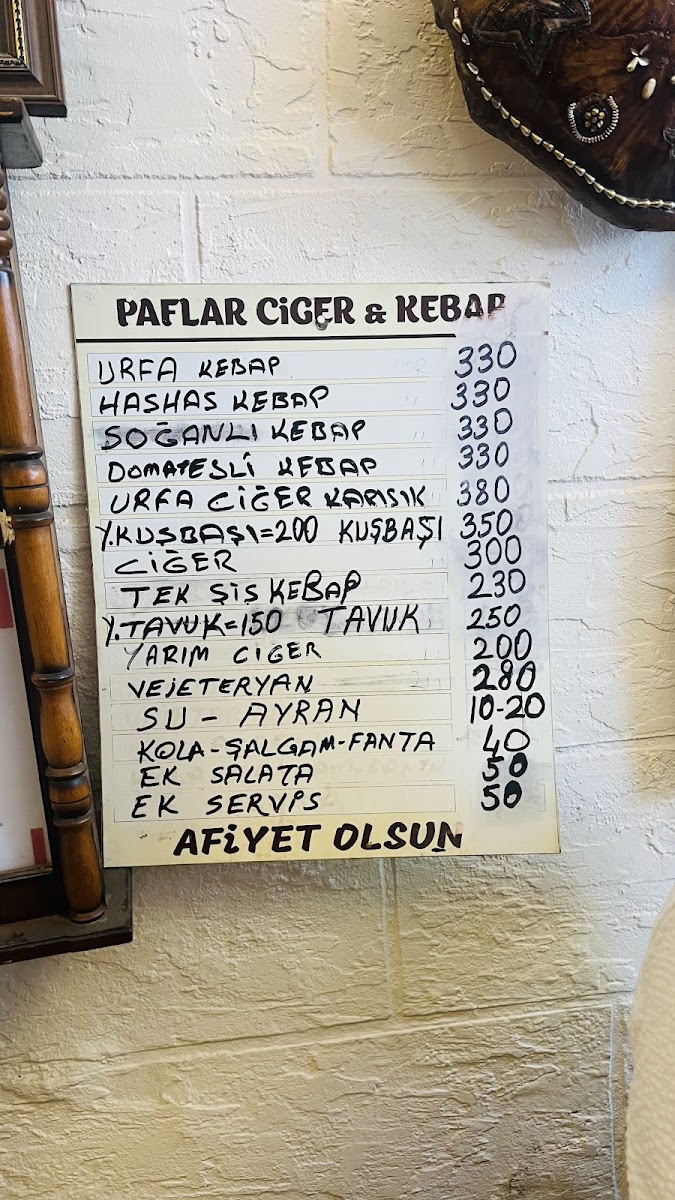 PAFLAR CİGER & KEBAP
URFA KEBAP 330
HASHAS KEBAP 330
SOĞANLI KEBAP 330
DOMATESLİ KEBAP 330
URFA CİĞER KARISIK 380
Y.KUŞBAŞI=200 KUŞBAŞI 350
CİĞER 300
TEK ŞİŞ KEBAP 230
Y.TAVUK=150 TAVUK 250
YARIM CİGER 200
VEJETERYAN 280
SU - AYRAN 10-20
KOLA-ŞALGAM-FANTA 40
EK SALATA 50
EK SERVİS 50
AFİYET OLSUN